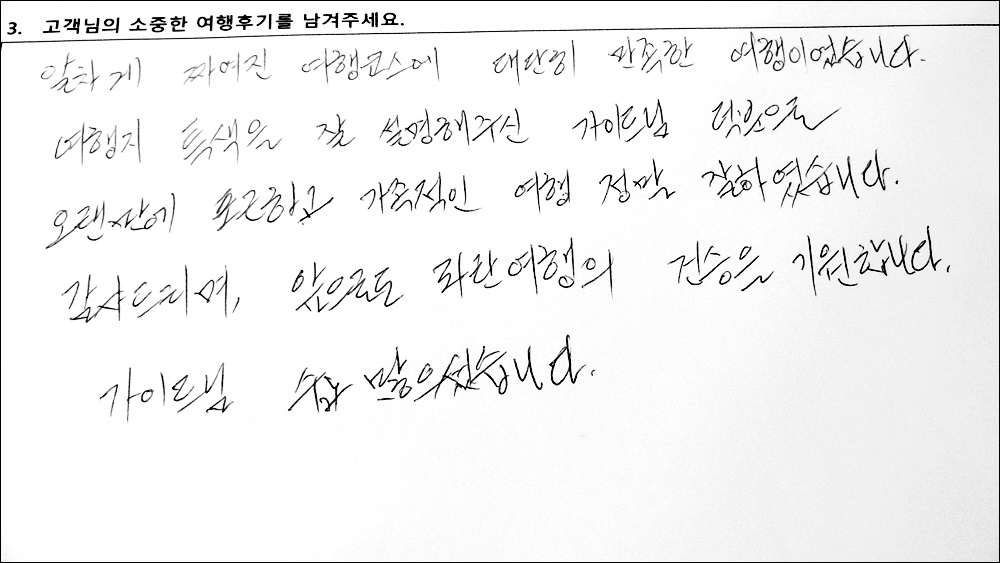 3. 고객님의 소중한 여행후기를 남겨주세요.
알차게 짜여진 여행코스에 대단히 만족한 여행이었습니다.
여행지 특색을 잘 설명해주신 가이드님 덕분으로
오랜만에 포근하고 가족적인 여행 정말 잘하였습니다.
감사드리며, 앞으로도 파란여행의 건승을 기원합니다.
가이드님 수고 많으셨습니다.